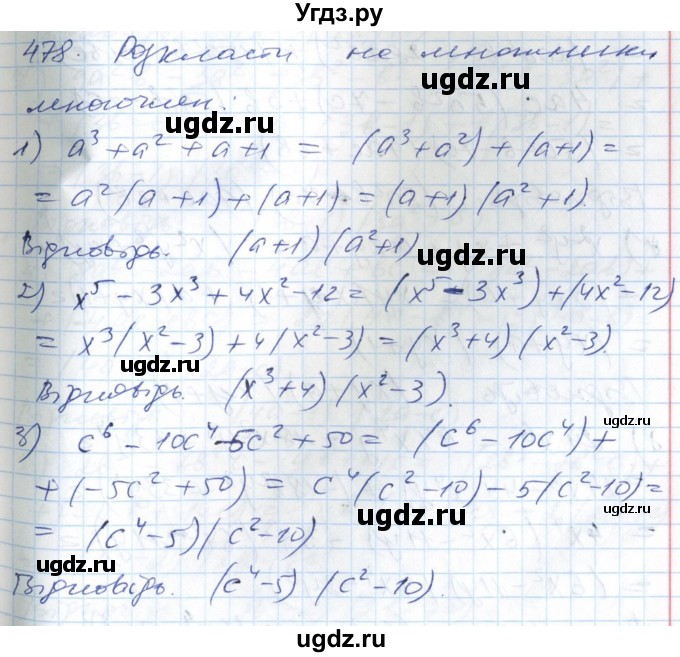 Угдз.ру
478. Розкласти на множники
многочлен:
ugdz.ru
ugdz.ru
1) a³ + a² + a + 1 = (a³ + a²) + (a + 1) =
= a² (a + 1) + (a + 1) = (a + 1) (a² + 1)
Відповідь. (a + 1) (a² + 1)
ugdz.ru
2) x⁵ - 3x³ + 4x² - 12 = (x⁵ - 3x³) + (4x² - 12)
= x³ (x² - 3) + 4 (x² - 3) = (x³ + 4) (x² - 3).
ugdz.ru
ugdz.ru
Відповідь. (x³ + 4) (x² - 3).
ugdz.ru
3) c⁶ - 10c⁴ - 5c² + 50 = (c⁶ - 10c⁴) +
+ (-5c² + 50) = c⁴ (c² - 10) - 5 (c² - 10) =
ugdz.ru
= (c⁴ - 5) (c² - 10)
ugdz.ru
Відповідь. (c⁴ - 5) (c² - 10).
ugdz.ru
ugdz.ru